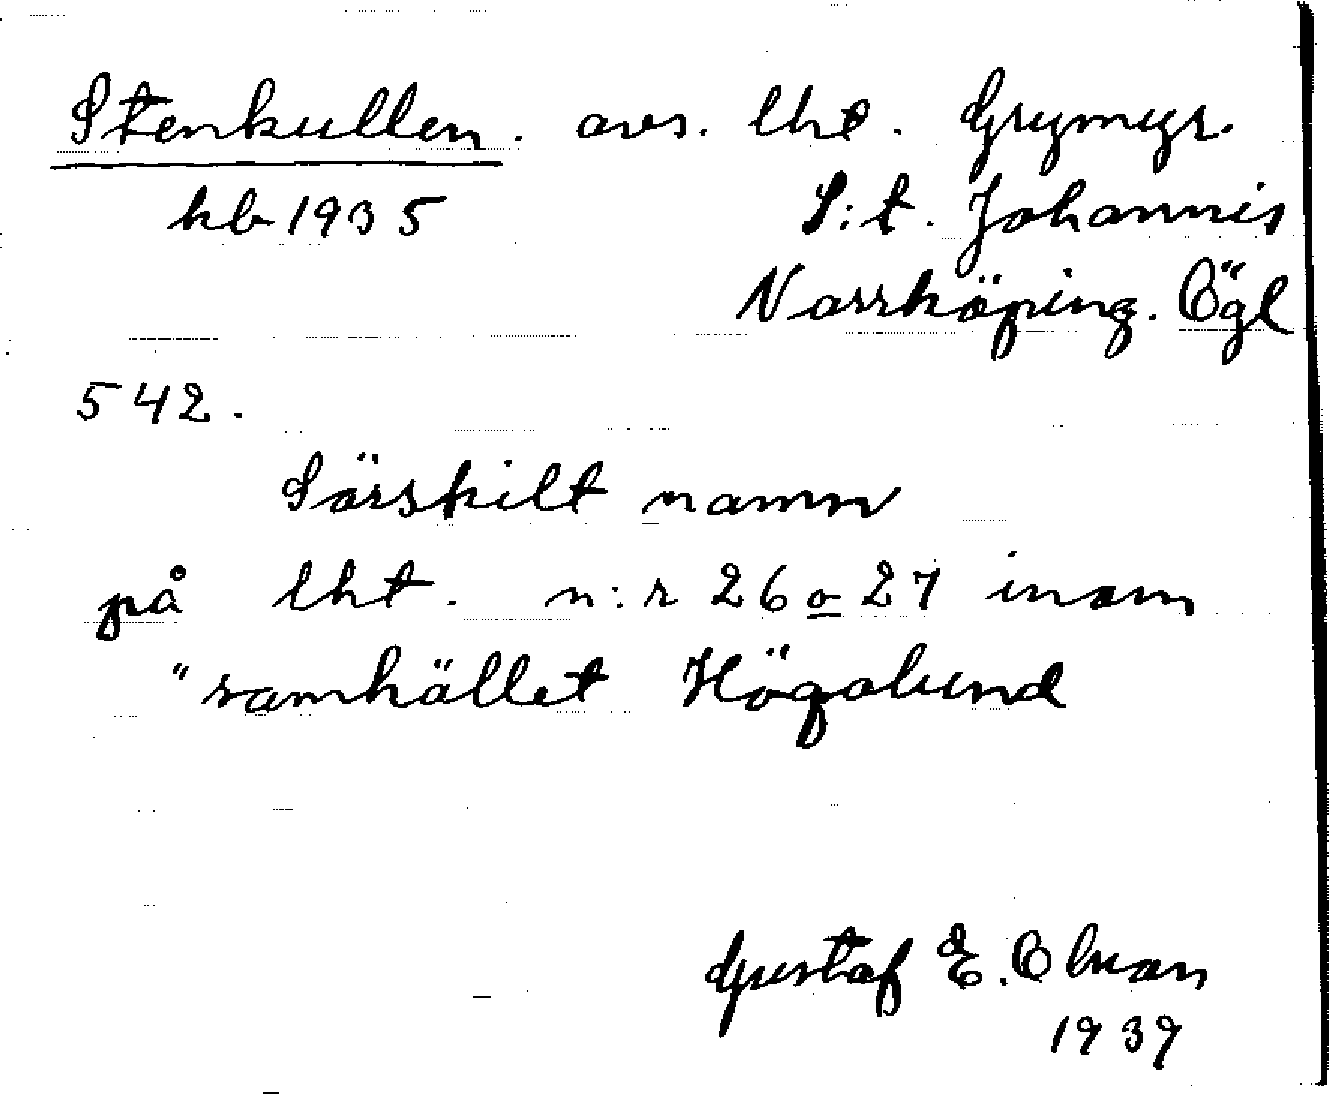 Stenkullen. avs. lht. Grymyr.
kb 1935 S:t. Johannis
Norrköping. Ögl
542.
Särskilt namn
på lht. n:r 26 o 27 inom
"samhället Högalund
Gustaf E. Olsson
1939